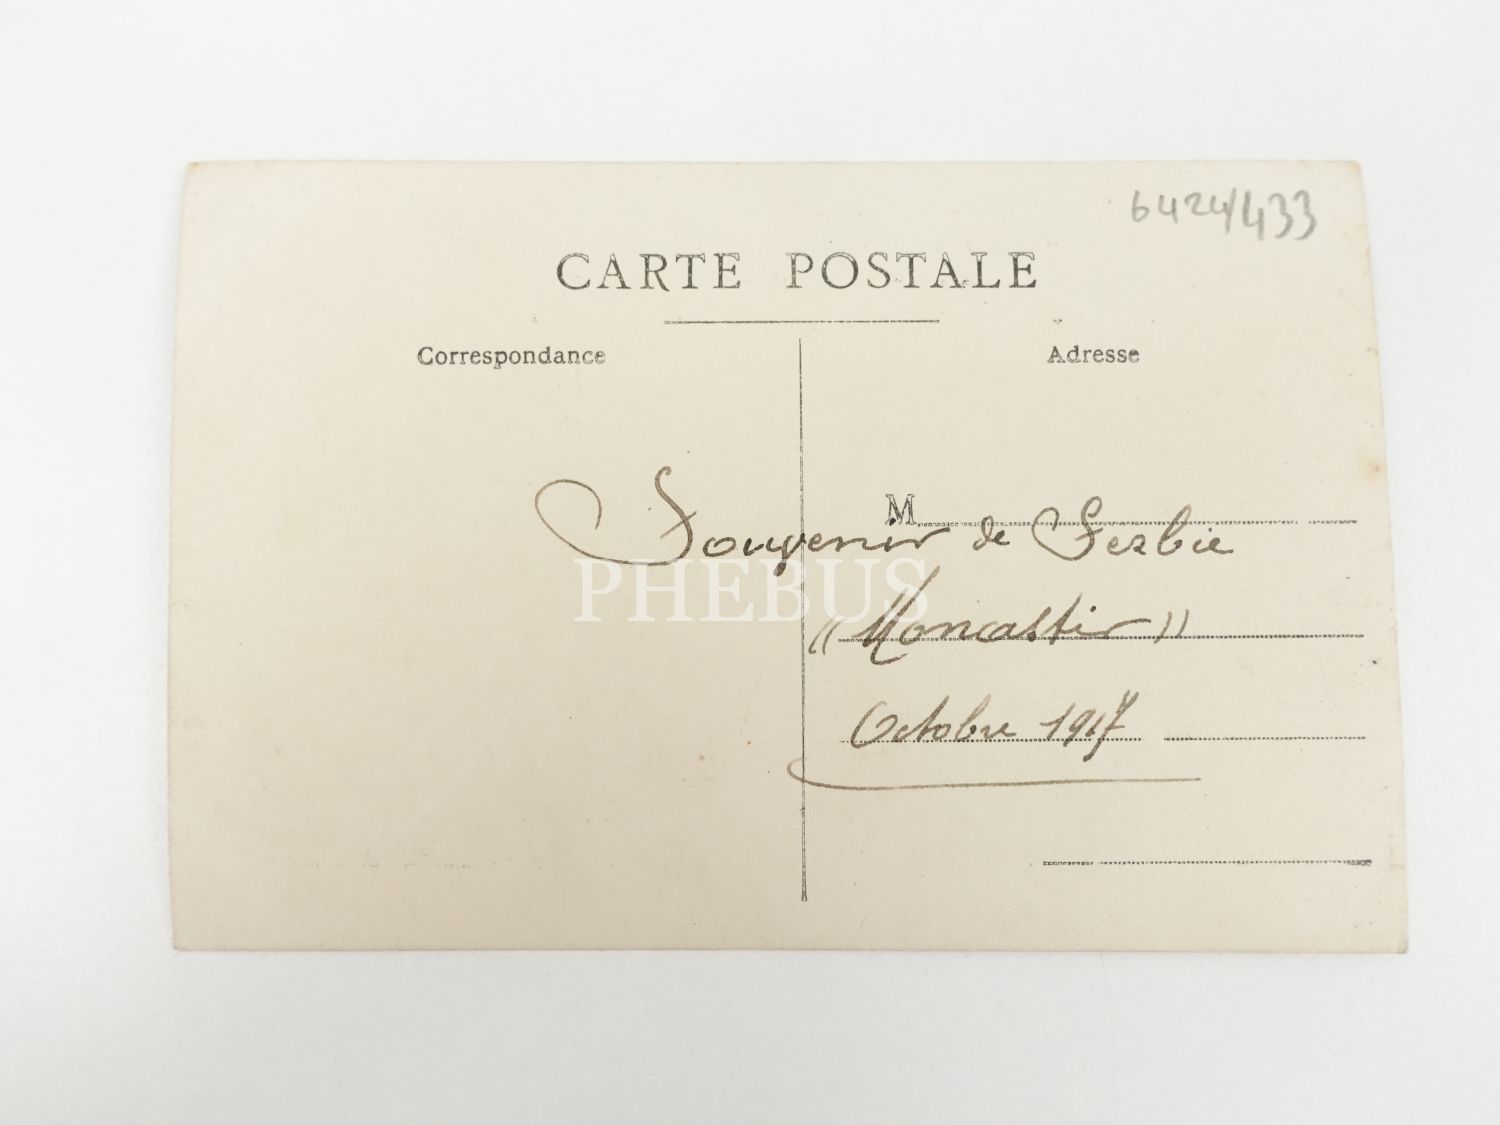 6424/433
CARTE POSTALE
Correspondance
Adresse
M
Souvenir de Serbie
PHEBUS
"Monastir"
Octobre 1917